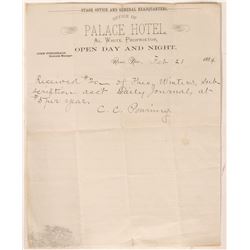 STAGE OFFICE AND GENERAL HEADQUARTERS.
OFFICE OF
PALACE HOTEL,
AL. WHITE, PROPRIETOR,
OPEN DAY AND NIGHT.
Feb 21 1884
Received $20 of Theo. Winters, sub
scription acct Daily Journal, at
per year.
C. C. Powning